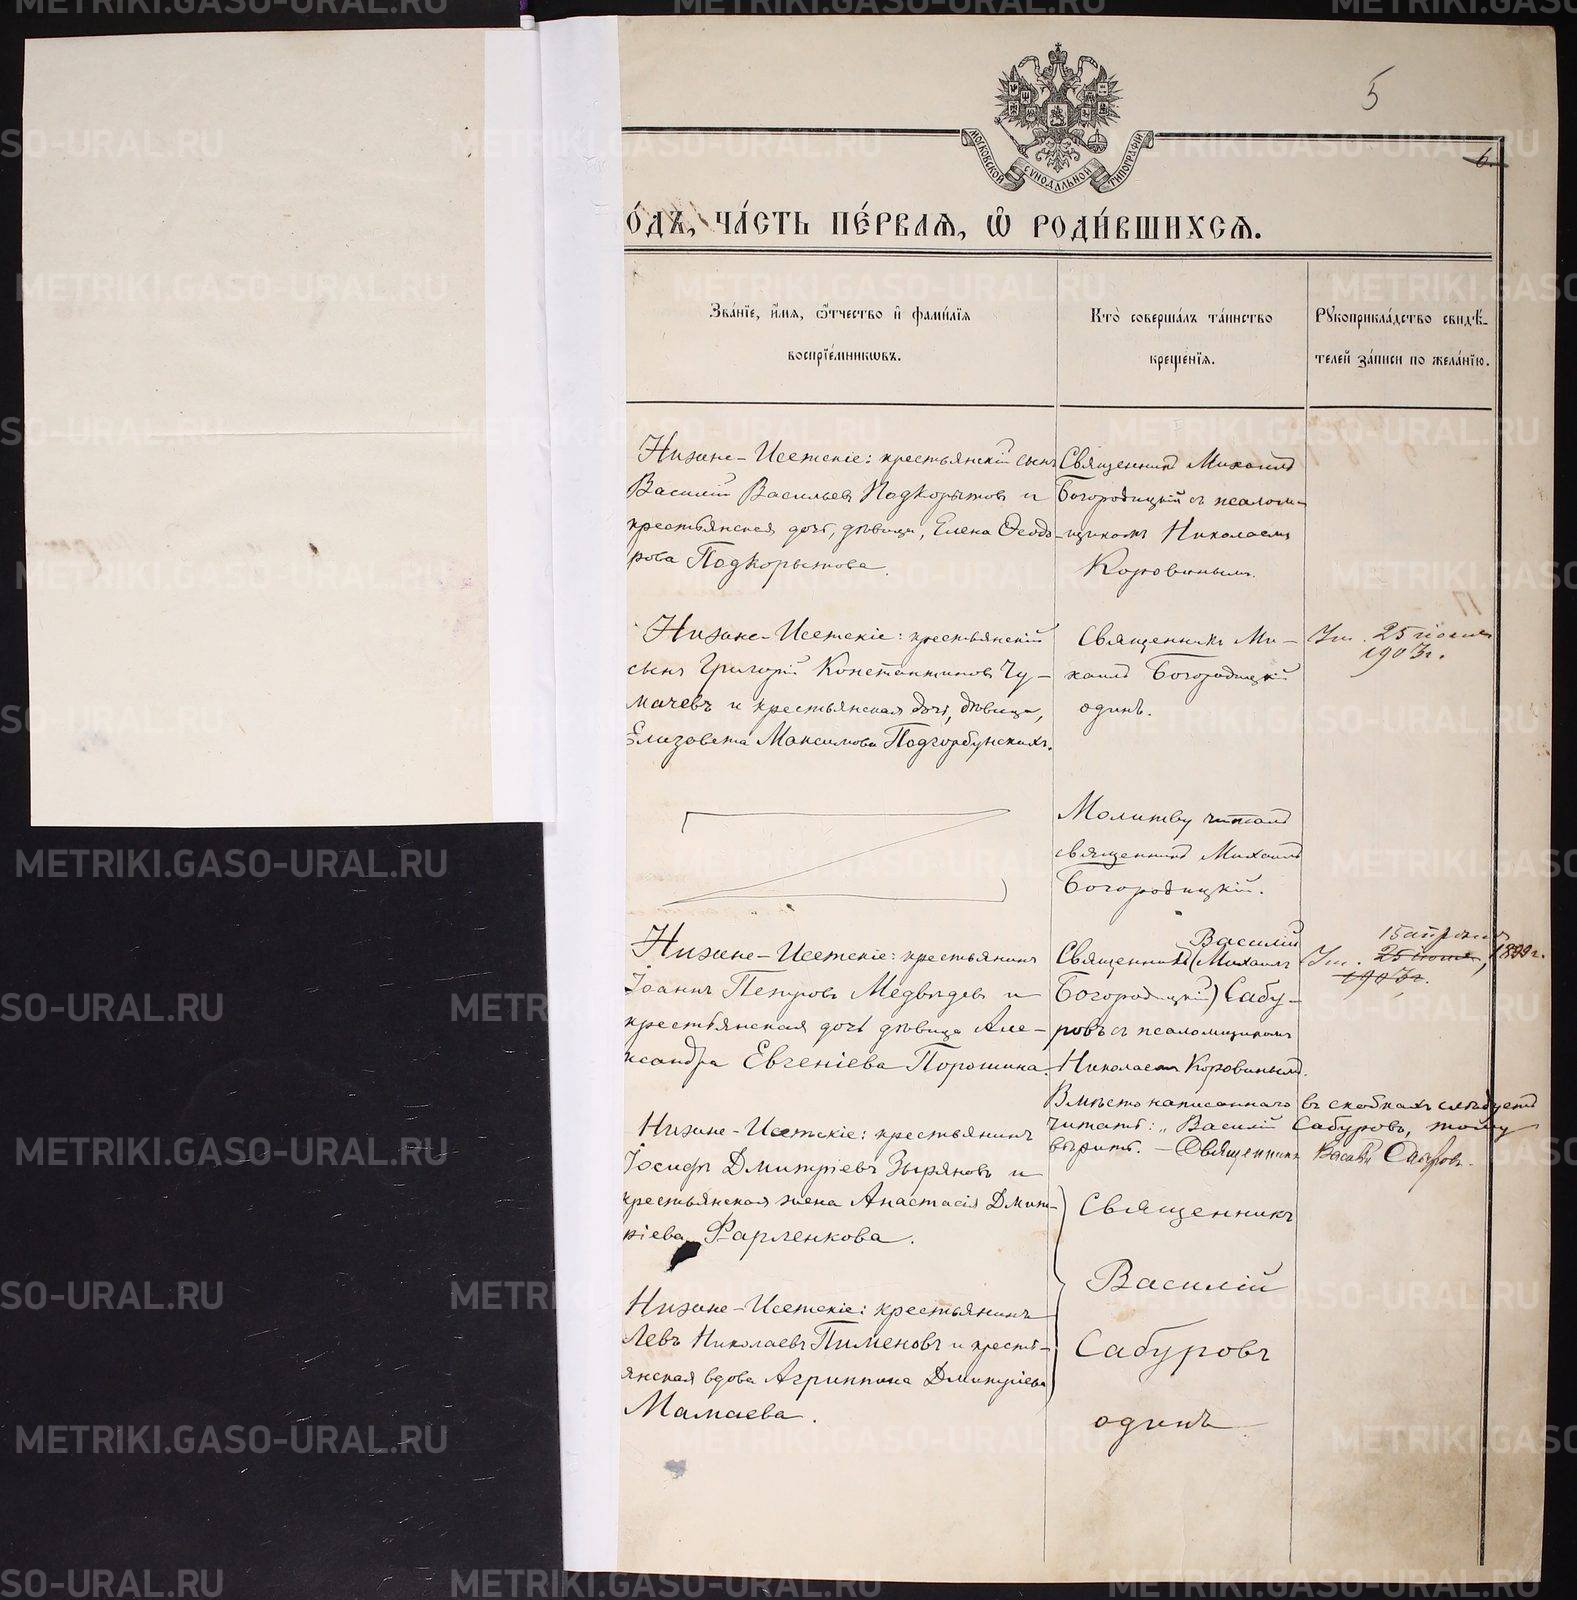 5
6.
МОСКОВСКОЙ СѴНОДАЛЬНОЙ ТИПОГРАФІИ
О́ДЪ, ЧА́СТЬ ПЕ́РВАЯ, Ѡ҆ РОДИ́ВШИХСЯ.
Зва́нїе, и҆́мя, ѻ҆́тчество и҆ фами́лїя
воспрїе́мникѡвъ.
Кто̀ соверша́лъ та́инство
креще́нїя.
Рꙋкоприкла́дство свидѣ́-
телей за́писи по жела́нїю.
Нижне-Исетскіе: крестьянскій сынъ
Василій Васильевъ Подкорытовъ и
крестьянская дочь, дѣвица, Елена Ѳеодо-
рова Подкорытова.
Священникъ Михаилъ
Богородицкій съ псалом-
щикомъ Николаемъ
Коровинымъ.
Нижне-Исетскіе: крестьянскій
сынъ Григорій Константиновъ Чу-
мачевъ и крестьянская дочь, дѣвица,
Елизавета Максимова Подгорбунскихъ.
Священникъ Ми-
хаилъ Богородицкій
одинъ.
25 іюня
1903г.
Молитву читалъ
священникъ Михаилъ
Богородицкій.
Нижне-Исетскіе: крестьянинъ
Іоаннъ Петровъ Медвѣдевъ и
крестьянская дочь дѣвица Але-
ксандра Евгеніева Порошина.
Василій
Священникъ (Михаилъ
Богородицкій) Сабу-
ровъ съ псаломщикомъ
Николаемъ Коровинымъ.
15 апрѣля
25 іюня, 1899г.
1903г.
Вмѣсто написаннаго въ скобкахъ слѣдуетъ
читать: „Василій Сабуровъ, тому
вѣрить. - Священникъ Василій Сабуровъ.
Нижне-Исетскіе: крестьянинъ
Іосифъ Дмитріевъ Зыряновъ и
крестьянская жена Анастасія Дмит-
ріева Фарленкова.
Священникъ
Василій
Сабуровъ
одинъ
Нижне-Исетскіе: крестьянинъ
Левъ Николаевъ Пименовъ и кресть-
янская вдова Агриппина Дмитріева
Мамаева.
METRIKI.GASO-URAL.RU